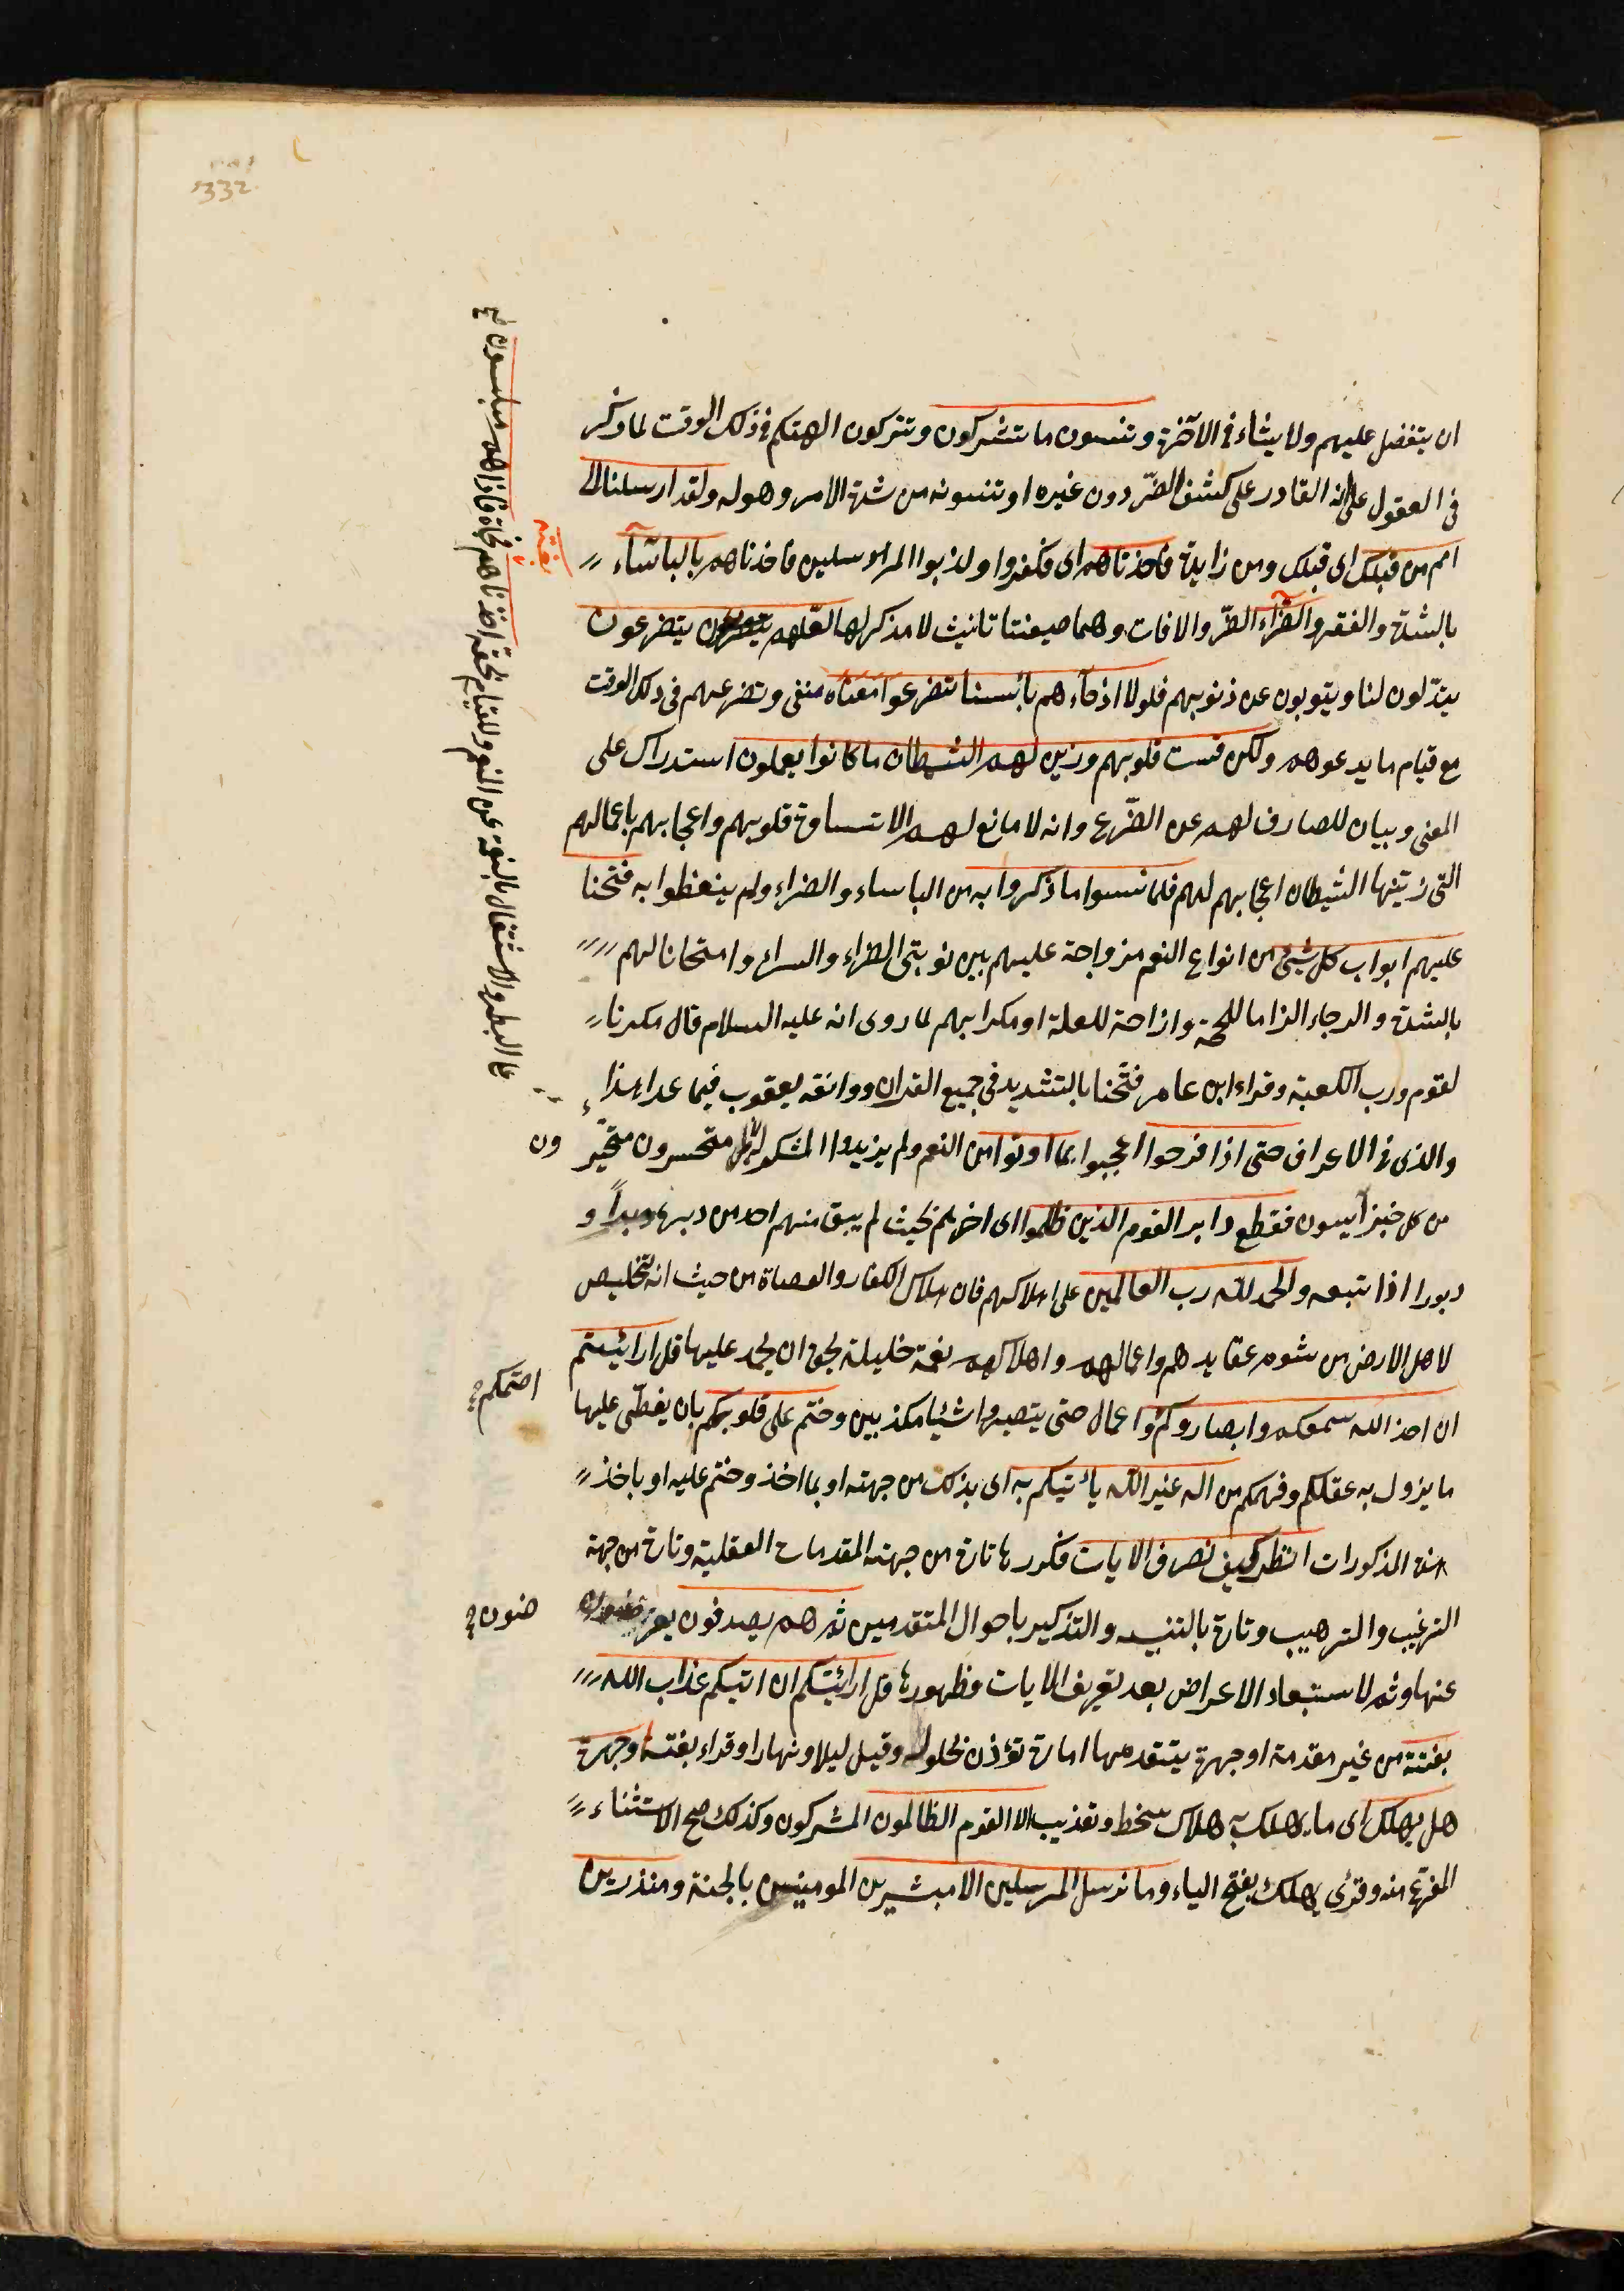 ان يتفضل عليهم ولا يشاء في الآخرة وتنسون ما تشركون وتتركون الهتكم في ذلك الوقت لما ركز
في العقول على انه القادر على كشف الضّر دون غيره او تنسونه من شدة الامر وهوله ولقد ارسلنا الى
امم من قبلك اى قبلك ومن زايدة فاخذناهم اى فكفروا وكذبوا المرسلين فاخذناهم بالباسآء
بالشدة والفقر والضرّآء الضّر والافات وهما صيغتا تانيث لا مذكر لهما لعّلهم يتضرعون
يتذّلون لنا ويتوبون عن ذنوبهم فلولا اذ جآءهم بأسنا تضرعوا معناه منفى وتضرعهم في ذلك الوقت
مع قيام ما يدعوهم ولكن قست قلوبهم وزين لهم الشيطان ما كانوا يعملون استدراك على
المعنى وبيان للصارف لهم عن التضّرع وانه لا مانع لهم الا قساوة قلوبهم واعجابهم باعمالهم
التى زينها الشيطان اعجابهم لهم فلما نسوا ما ذكروا به من الباساء والضراء ولم يتعظوا به فتحنا
عليهم ابواب كل شيئ من انواع النعم مزواجة عليهم بين نوبتى الضراء والسراء وامتحانا لهم
بالشدة والرجاء الزاما للحجة وازاحة للعلة او مكرا بهم لما روى انه عليه السلام قال مكرنا
لقوم ورب الكعبة وقراء ابن عامر فتّحنا بالتشديد في جميع القران ووافقه يعقوب فيما عدا هذا
والذى في الاعراف حتى اذا فرحوا اعجبوا بما اوتوا من النعم ولم يزيدوا متحسرون متحيّر
ون
من كل خير آيسون فقطع دابر القوم الذين ظلموا اى اخرهم بحيث لم يبق منهم احد من دبره دبراً و
دبورا اذا تبعه والحمد للّه رب العالمين على اهلاكهم فان هلاك الكفار والعصاة من حيث انه تخليص
لاهل الارض من شوم عقايدهم واعمالهم واهلاكهم نعمة جليلة بحق ان يحمد عليها قل ارائيتم
ان اخذ الله سمعكم وابصاركم حتى وختم على قلوبكم بان يغطّى عليها
اصمكم
ما يزول به عقلكم وفهمكم من اله غير اللّه يأتيكم به اى بذلك من جهته او بما اخذ وختم عليه او باخذ
هذه المذكورات انظر كيف نصرف الايات فكررها تارة من جهة المقدمات العقلية وتارة من جهة
الترغيب والترهيب وتارة بالتنبيه والتذكير باحوال المتقدمين ثم هم يصدفون يعر
ضون
عنها وثم لاستبعاد الاعراض بعد تعريف الايات وظهورها قل ارائيتكم ان اتيكم عذاب الله
بغتة من غير مقدمة او جهرة يتقدمها امارة تؤذن بحلوله وقيل ليلا ونهارا وقراء بغتة او جهرة
هل يهلك اى ما يهلك به هلاك سخط وتعذيب الا القوم الظالمون المشركون وكذلك صح الاستثناء
المفرغ منه وقرئ يهلك بفتح الياء وما نرسل المرسلين الا مبشرين المومنين بالجنة ومنذرين
بغتة
على البطر والاشتغال بالنعمة عن المنعم والقيام بحقه اخذناهم فجاة فاذا هم مبلسون
332